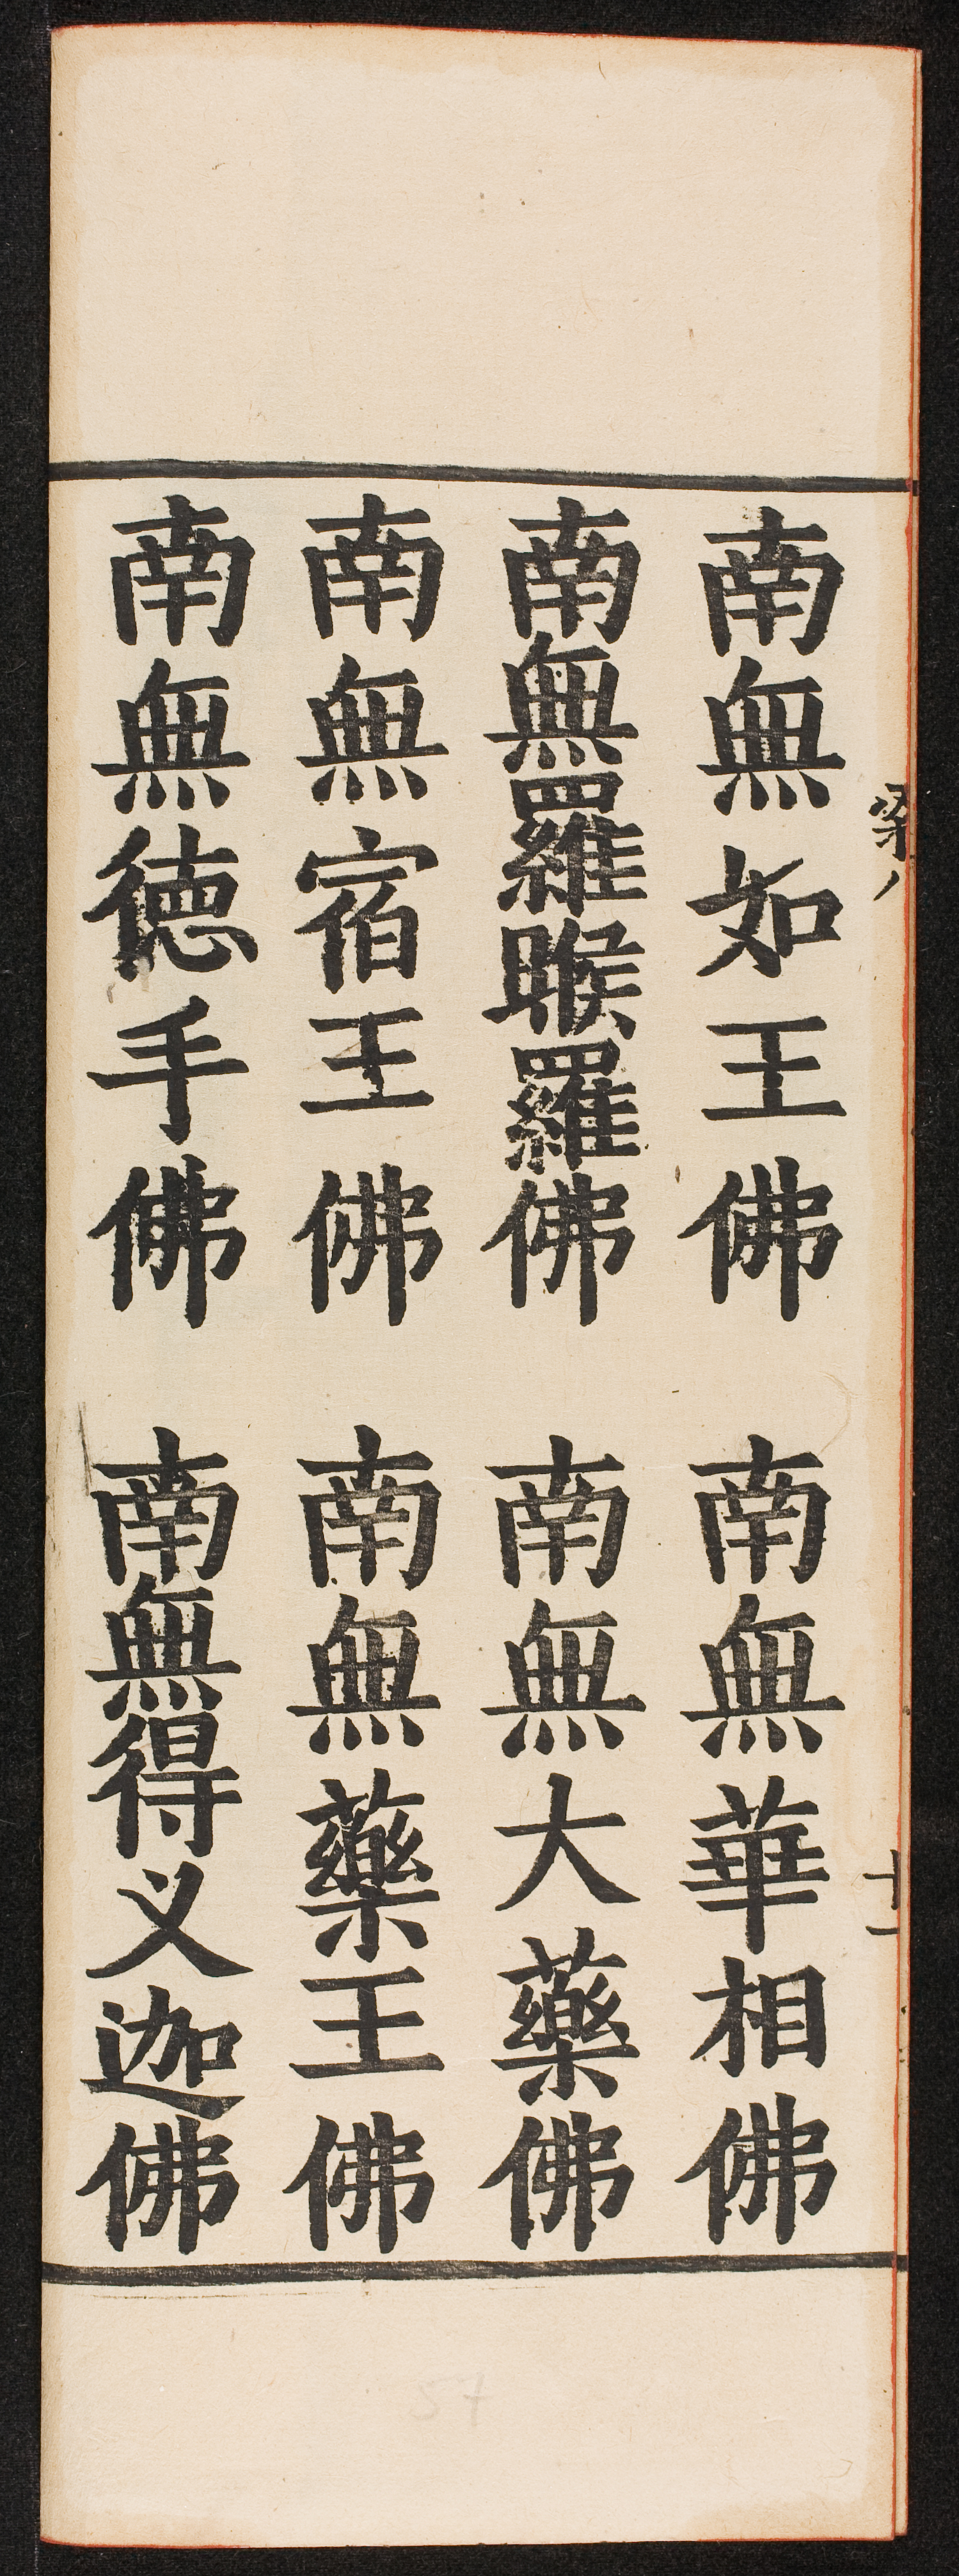 南無如王佛 南無華相佛
南無羅睺羅佛 南無大藥佛
南無宿王佛 南無藥王佛
南無德手佛 南無得义迦佛
梁八
十一
57